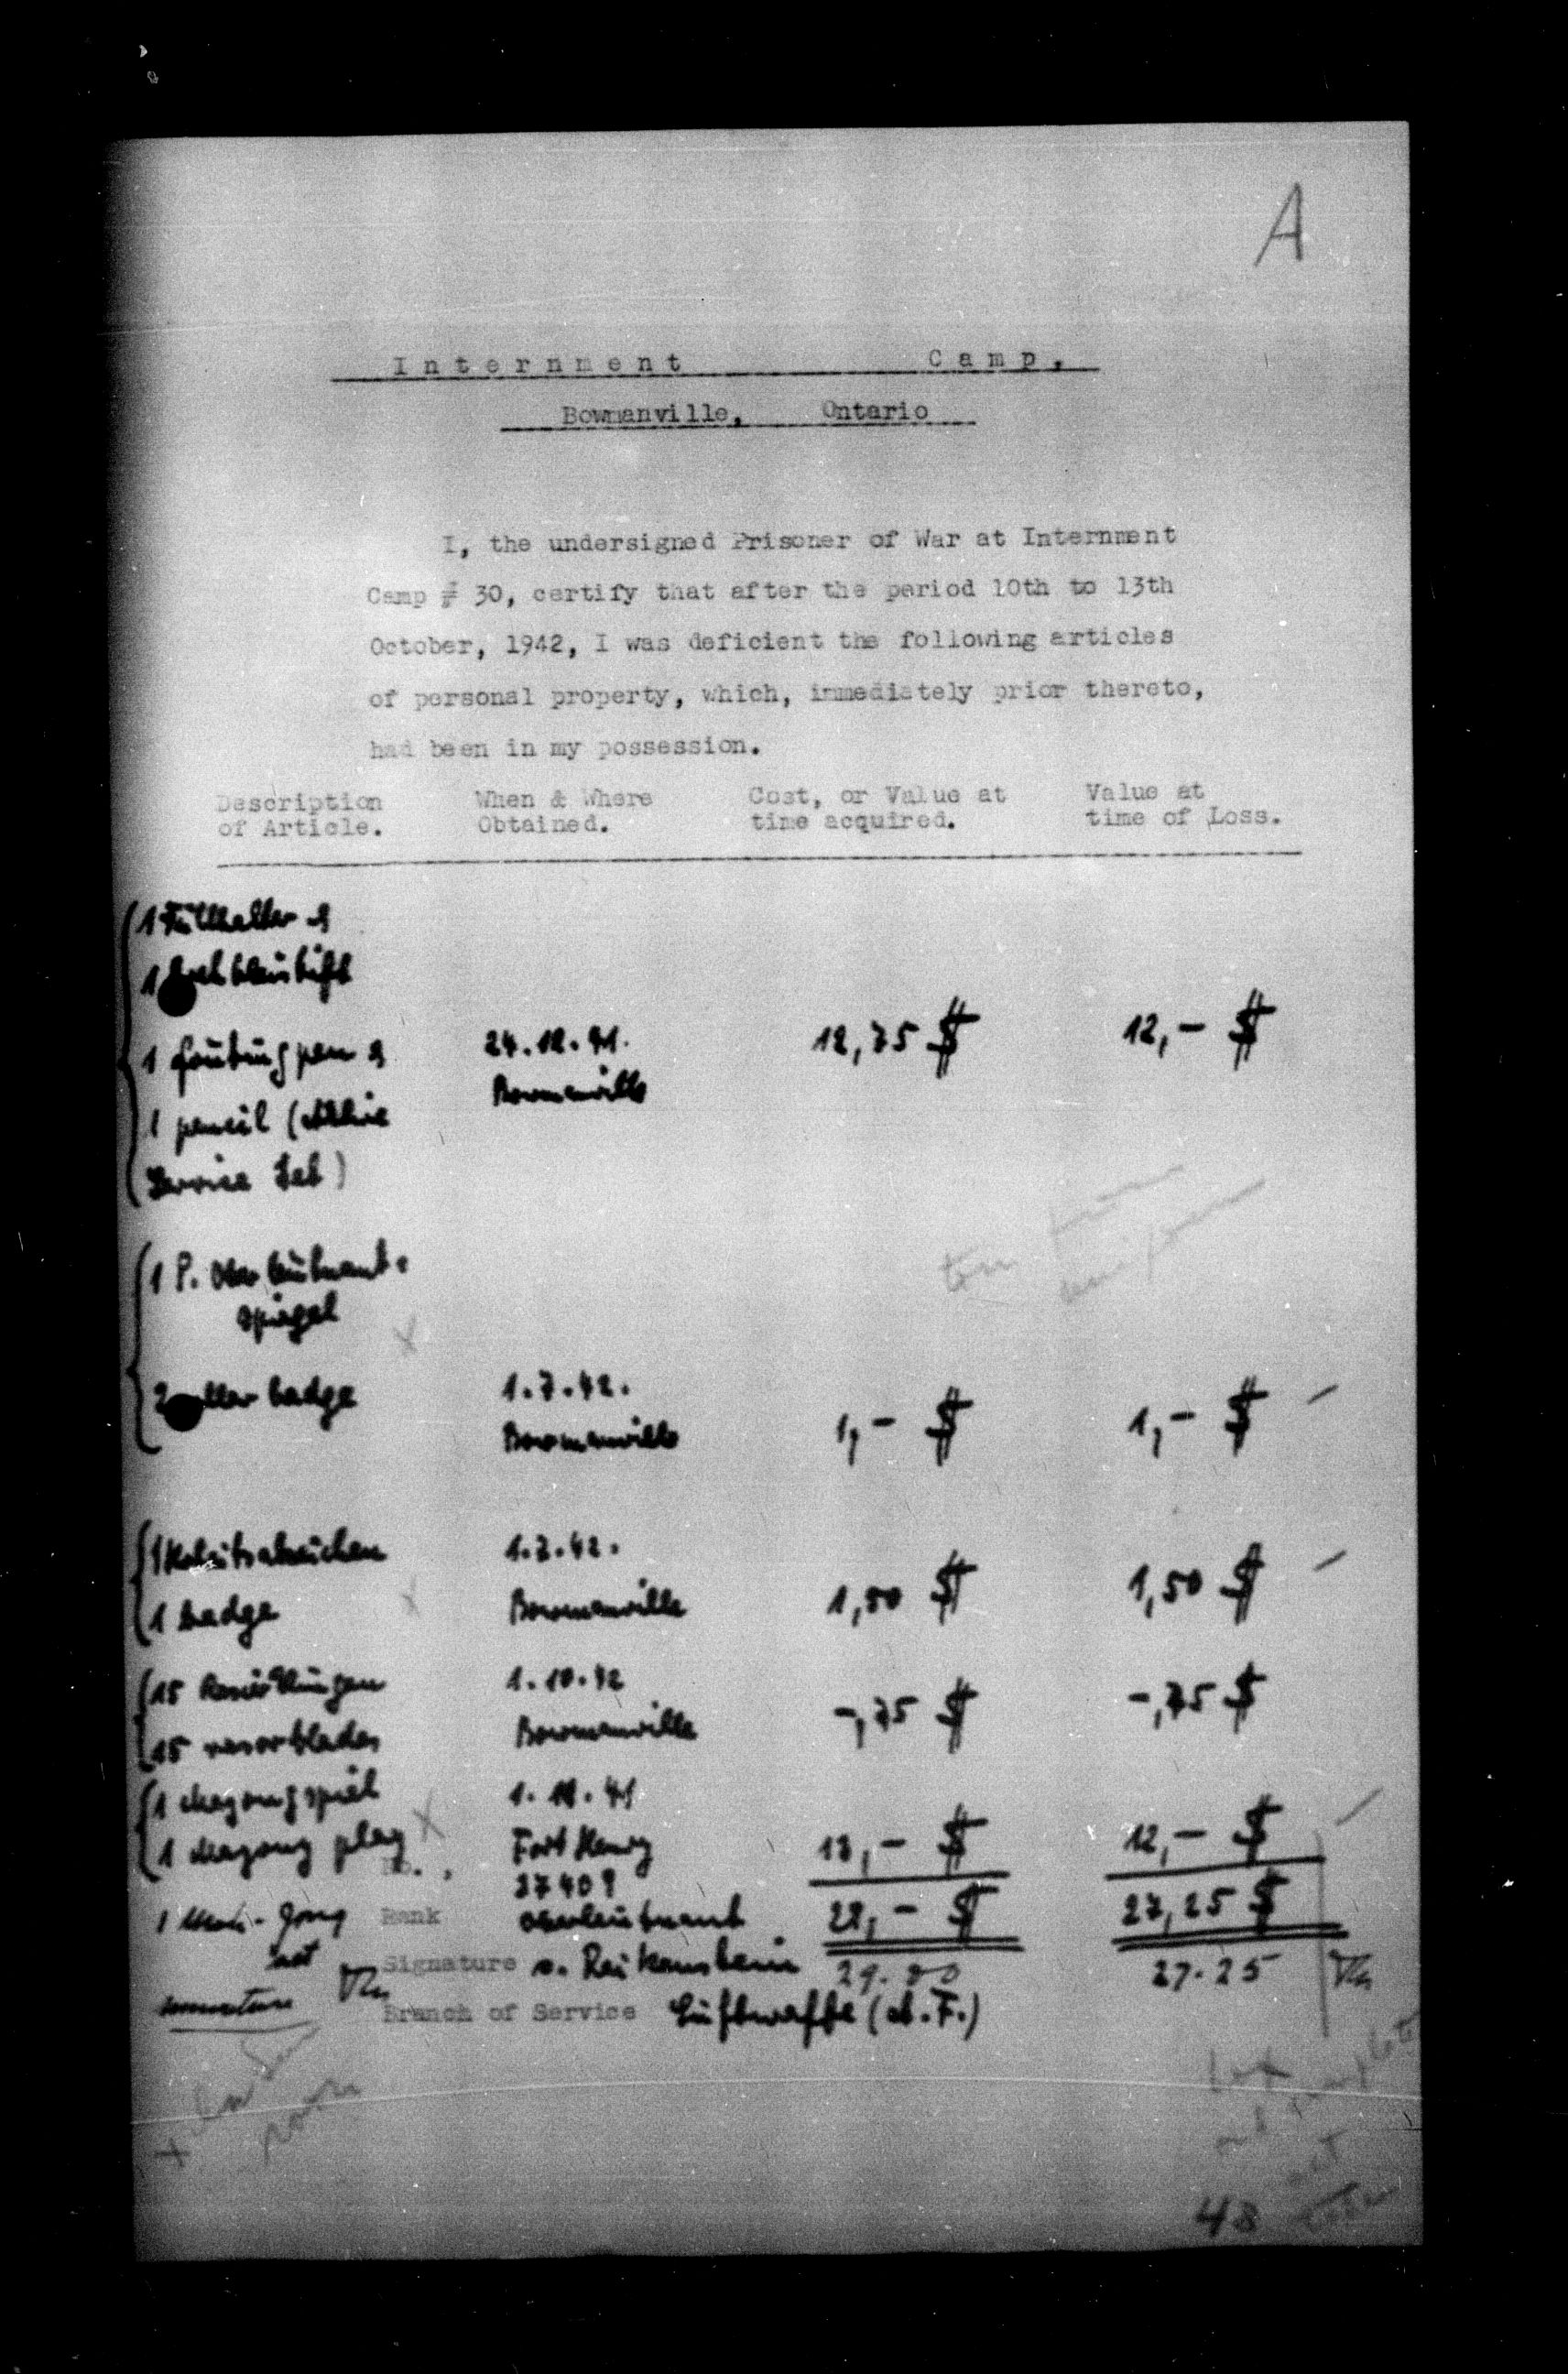 A
Internment Camp,
Bowmanville, Ontario
I, the undersigned Prisoner of War at Internment
Camp # 30, certify that after the period 10th to 13th
October, 1942, I was deficient the following articles
of personal property, which, immediately prior thereto,
had been in my possession.
Description of Article. When & Where Obtained. Cost, or Value at time acquired. Value at time of Loss.
1 Füllhalter &
1
1 pen & 24.12.41. 12,75 $ 12,- $
1 pencil ( Bowmanville
Service Set)
1 P. Oberleutnant-
spiegel
2 badge 1.7.42. 1,- $ 1,- $
Bowmanville
1 Hoheitsabzeichen 1.7.42. 1,50 $ 1,50 $
1 badge Bowmanville
15 Rasierklingen 1.10.42 -,75 $ -,75 $
15 rasorblades Bowmanville
1 Mayongspiel 1.11.41
1 Mayong play Fort Henry 12,- $
No. 37409
1 Mah-Jong Rank Oberleutnant 27,25 $
set Signature v. 27.25
miniature Branch of Service Luftwaffe
48